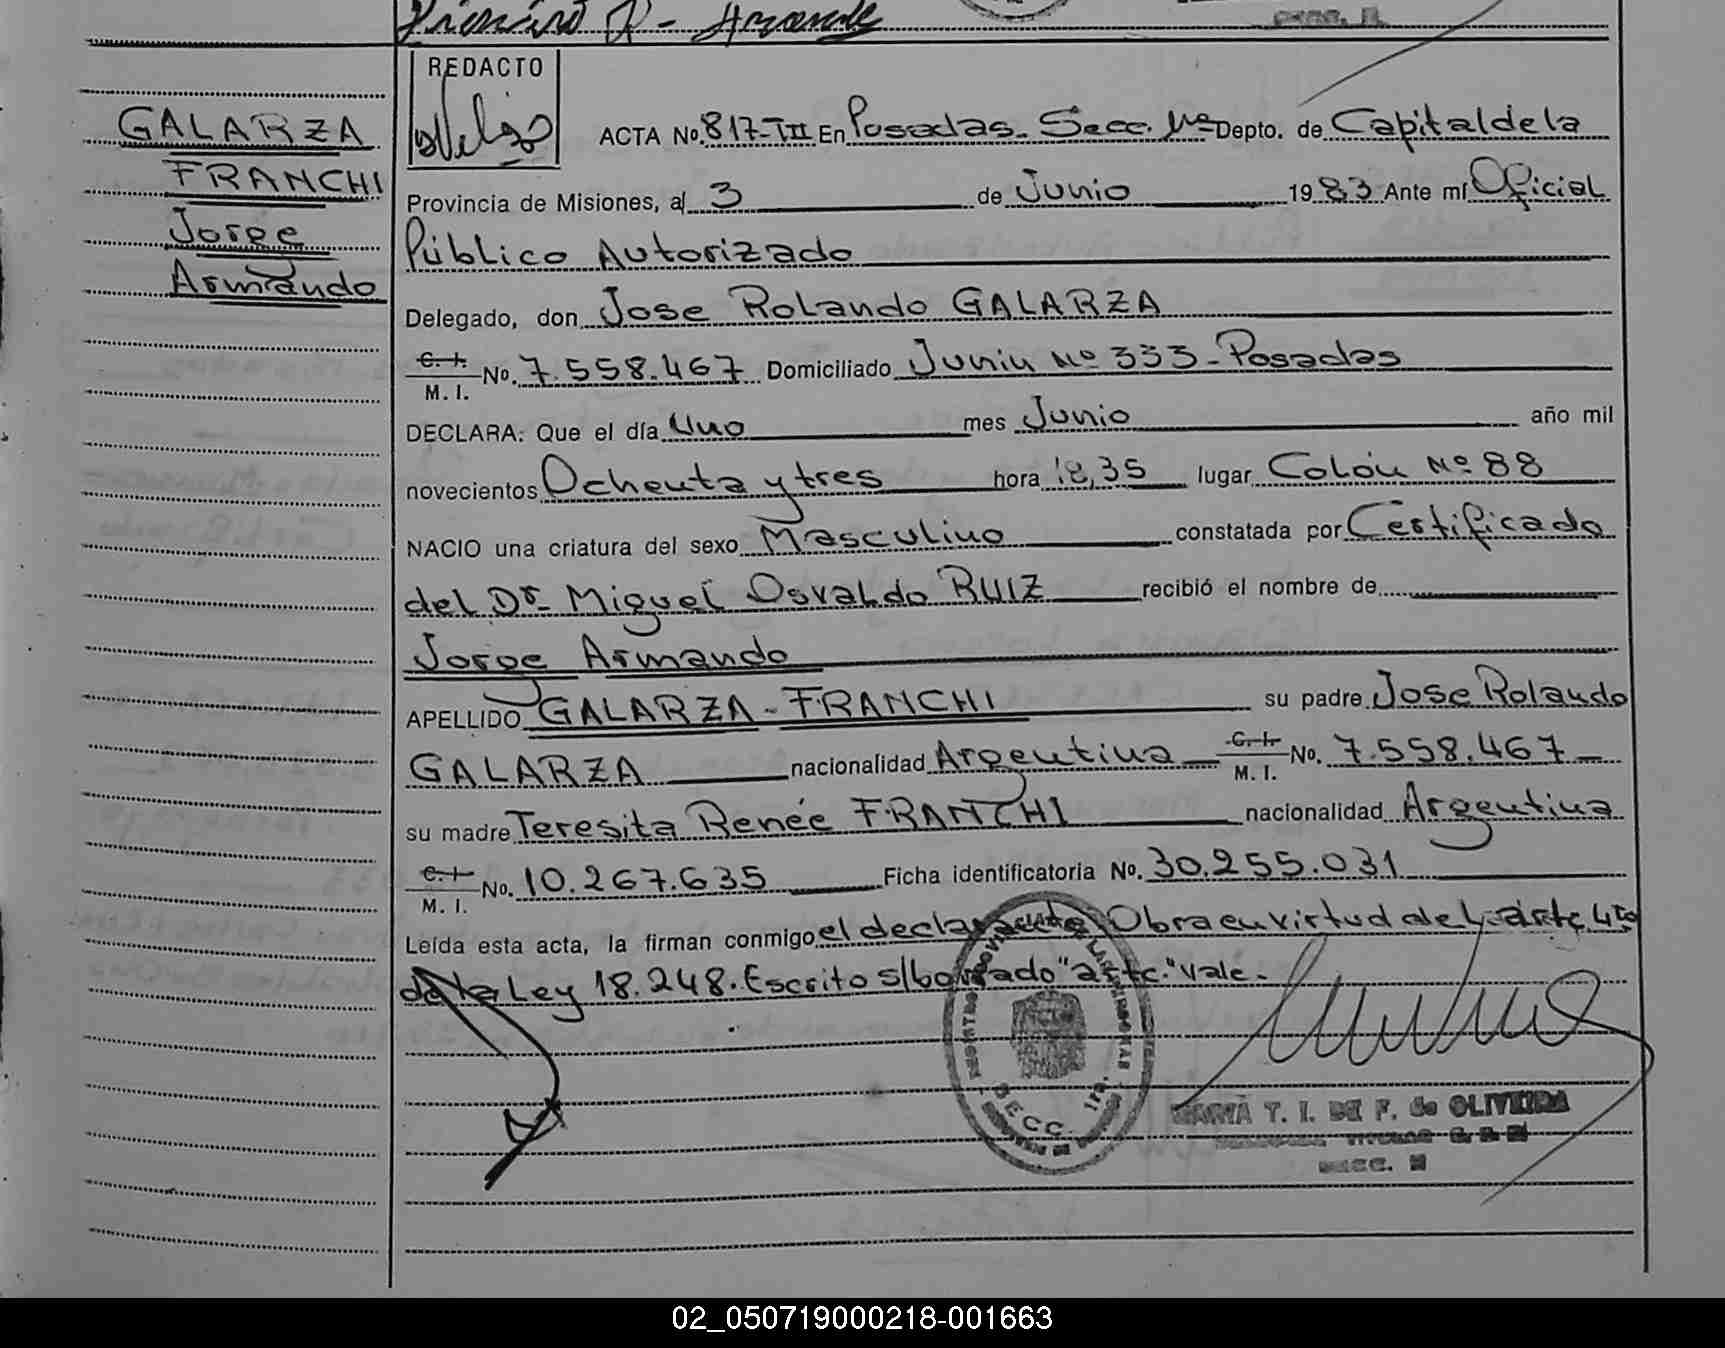 REDACTO
GALARZA
FRANCHI
Jorge
Armando
ACTA No. 817-III En Posadas- Secc. 1ra Depto. de Capital de la
Provincia de Misiones, al 3 de Junio 1983 Ante mí Oficial
Público Autorizado
Delegado, don Jose Rolando GALARZA
C. I.
M. I. No. 7.558.467 Domiciliado Junin Nº 333-Posadas
DECLARA: Que el día Uno mes Junio año mil
novecientos Ochenta y tres hora 18,35 lugar Colón Nº 88
NACIO una criatura del sexo Masculino constatada por Certificado
del Dr. Miguel Osvaldo RUIZ recibió el nombre de
Jorge Armando
APELLIDO GALARZA-FRANCHI su padre Jose Rolando
GALARZA nacionalidad Argentina C. I.
M. I. No. 7.558.467
su madre Teresita Renée FRANCHI nacionalidad Argentina
C. I.
M. I. No. 10.267.635 Ficha identificatoria No. 30.255.031
Leída esta acta, la firman conmigo el declarante Obra en virtud del artc. 4to
de la Ley 18.248. Escrito s/borrado "artc." Vale.
SECC. 1ra.
MARIA T. I. DE F. de OLIVEIRA
02_050719000218-001663